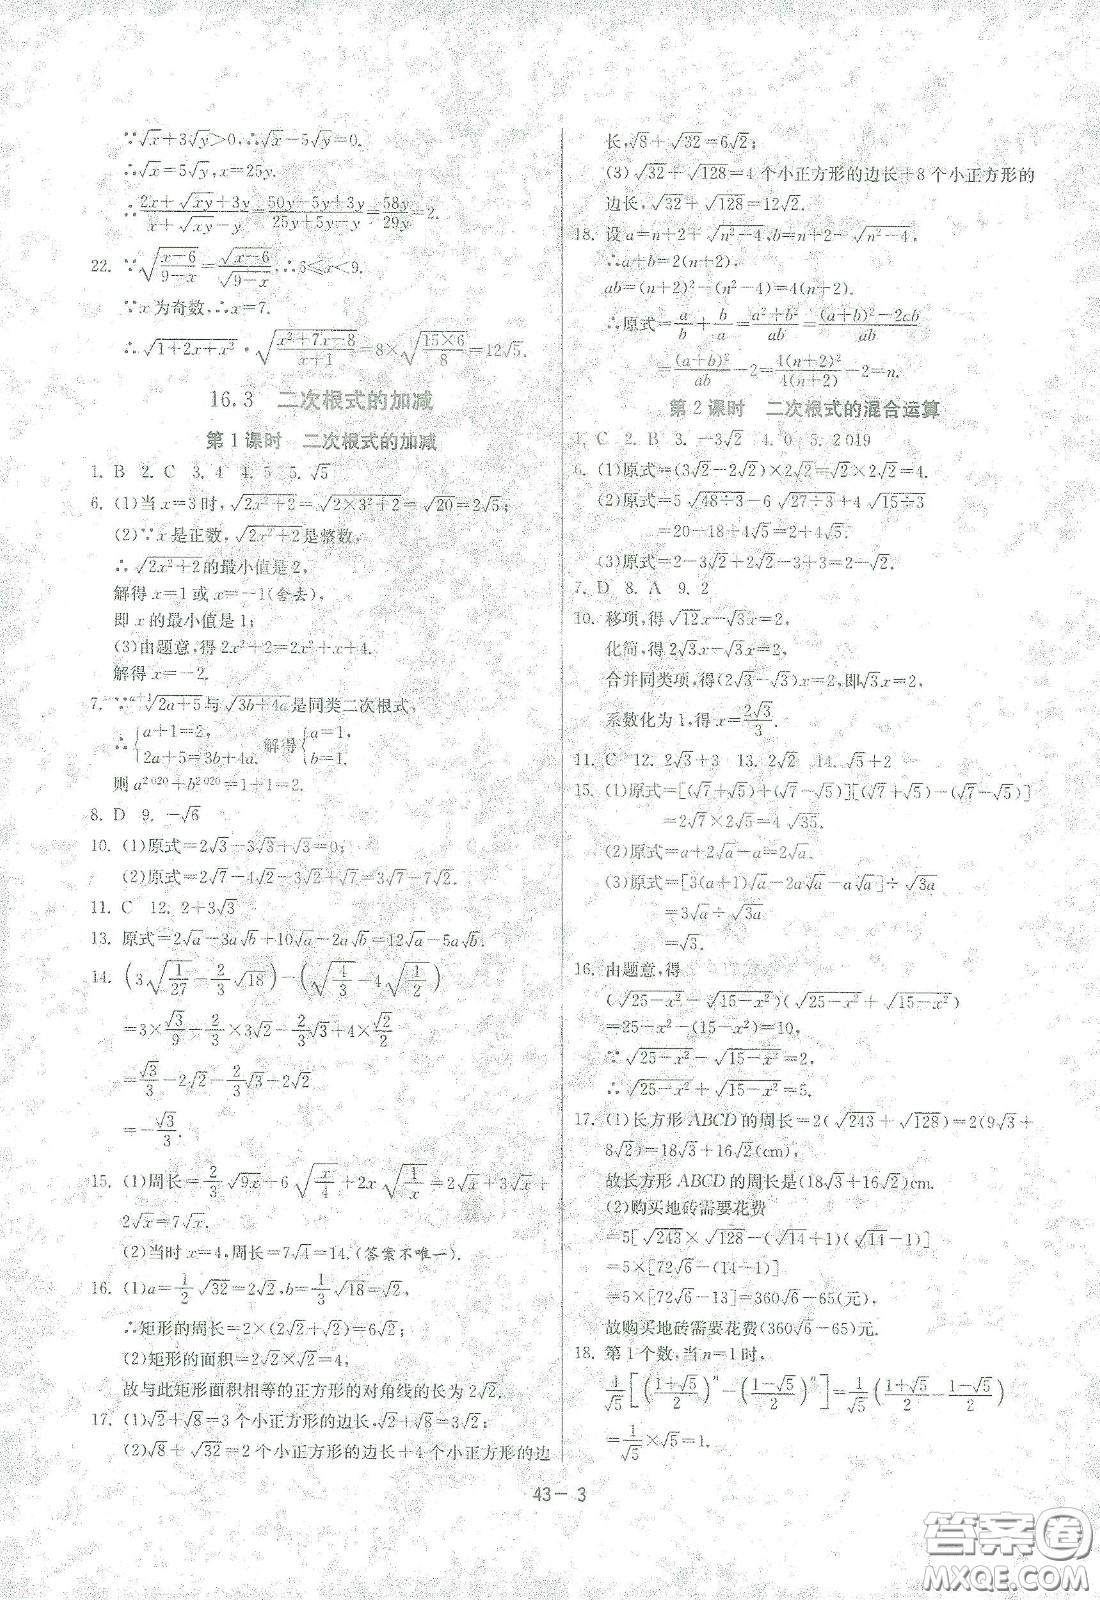 ∵√x+3√y>0,∴√x−5√y=0.
∴√x=5√y,x=25y.
∴(2x+√xy+3y)/(x+√xy−y)=(50y+5y+3y)/(25y+5y−y)=58y/29y=2.
22. ∵√((x−6)/(9−x))=√(x−6)/√(9−x),∴6⩽x<9.
∵x为奇数,∴x=7.
∴√(1+2x+x²)·√((x²+7x−8)/(x+1))=8×√((15×6)/8)=12√5.
16.3 二次根式的加减
第1课时 二次根式的加减
1. B 2. C 3. 4 4. 5 5. √5
6. (1)当x=3时,√(2x²+2)=√(2×3²+2)=√20=2√5;
(2)∵x是正数,√(2x²+2)是整数,
∴√(2x²+2)的最小值是2,
解得x=1或x=−1(舍去),
即x的最小值是1;
(3)由题意,得2x²+2=2x²+x+4.
解得x=−2.
7. ∵ᵃ⁺¹√(2a+5)与√(3b+4a)是同类二次根式,
∴{a+1=2, 2a+5=3b+4a. 解得{a=1, b=1.
则a²⁰²⁰+b²⁰²⁰=1+1=2.
8. D 9. −√6
10. (1)原式=2√3−3√3+√3=0;
(2)原式=2√7−4√2−3√2+√7=3√7−7√2.
11. C 12. 2+3√3
13. 原式=2√a−3a√b+10√a−2a√b=12√a−5a√b.
14. (3√(1/27)−2/3√18)−(√(4/3)−4√(1/2))
=3×√3/9−2/3×3√2−2/3√3+4×√2/2
=√3/3−2√2−2/3√3+2√2
=−√3/3.
15. (1)周长=2/3√9x+6√(x/4)+2x√(1/x)=2√x+3√x+
2√x=7√x.
(2)当时x=4,周长=7√4=14.(答案不唯一).
16. (1)a=1/2√32=2√2,b=1/3√18=√2,
∴矩形的周长=2×(2√2+√2)=6√2;
(2)矩形的面积=2√2×√2=4,
故与此矩形面积相等的正方形的对角线的长为2√2.
17. (1)√2+√8=3个小正方形的边长,√2+√8=3√2;
(2)√8+√32=2个小正方形的边长+4个小正方形的边
长,√8+√32=6√2;
(3)√32+√128=4个小正方形的边长+8个小正方形的
边长,√32+√128=12√2.
18. 设a=n+2+√(n²−4),b=n+2−√(n²−4),
∴a+b=2(n+2),
ab=(n+2)²−(n²−4)=4(n+2).
∴原式=a/b+b/a=(a²+b²)/ab=((a+b)²−2ab)/ab
=(a+b)²/ab−2=4(n+2)²/4(n+2)−2=n.
第2课时 二次根式的混合运算
1. C 2. B 3. −3√2 4. 0 5. 2 019
6. (1)原式=(3√2−2√2)×2√2=√2×2√2=4.
(2)原式=5√(48÷3)−6√(27÷3)+4√(15÷3)
=20−18+4√5=2+4√5.
(3)原式=2−3√2+2√2−3+3=2−√2.
7. D 8. A 9. 2
10. 移项,得√12x−√3x=2,
化简,得2√3x−√3x=2,
合并同类项,得(2√3−√3)x=2,即√3x=2,
系数化为1,得x=2√3/3.
11. C 12. 2√3+3 13. 2√2 14. √5+2
15. (1)原式=[(√7+√5)+(√7−√5)][(√7+√5)−(√7−√5)]
=2√7×2√5=4√35.
(2)原式=a+2√a−a=2√a.
(3)原式=[3(a+1)√a−2a√a−a√a]÷√3a
=3√a÷√3a
=√3.
16. 由题意,得
(√(25−x²)−√(15−x²))(√(25−x²)+√(15−x²))
=25−x²−(15−x²)=10,
∵√(25−x²)−√(15−x²)=2,
∴√(25−x²)+√(15−x²)=5.
17. (1)长方形ABCD的周长=2(√243+√128)=2(9√3+
8√2)=18√3+16√2(cm),
故长方形ABCD的周长是(18√3+16√2)cm.
(2)购买地砖需要花费
=5[√243×√128−(√14+1)(√14−1)]
=5×[72√6−(14−1)]
=5×[72√6−13]=360√6−65(元),
故购买地砖需要花费(360√6−65)元.
18. 第1个数,当n=1时,
1/√5[((1+√5)/2)ⁿ−((1−√5)/2)ⁿ]=1/√5((1+√5)/2−(1−√5)/2)
=1/√5×√5=1.
43－3
答案圈
MXQE.COM